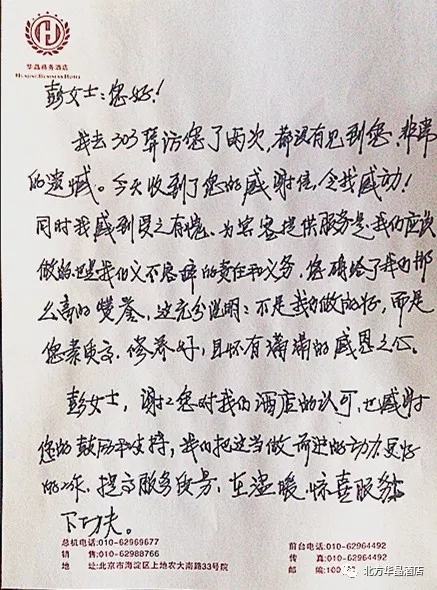 华晶商务酒店
HUAJING BUSINESS HOTEL
彭女士：您好！
我去303拜访您了两次，都没有见到您，非常
的遗憾。今天收到了您的感谢信，令我感动！
同时我感到受之有愧、为宾客提供服务是我们应该
做的，也是我们义不容辞的责任和义务，您确给了我们那
么高的赞誉，这充分说明：不是我们做的好，而是
您素质高，修养好，且怀有满满的感恩之心。
彭女士，谢谢您对我们酒店的认可，也感谢
您的鼓励和支持，我们把这当做前进的动力更好
的工作，提高服务质量，在温暖、惊喜服务上
下功夫。
总机电话：010-62969677
销 售：010-62988766
地 址：北京市海淀区上地农大南路33号院
前台电话：010-62964492
传 真：010-62964492
邮 编：100
北方华晶酒店